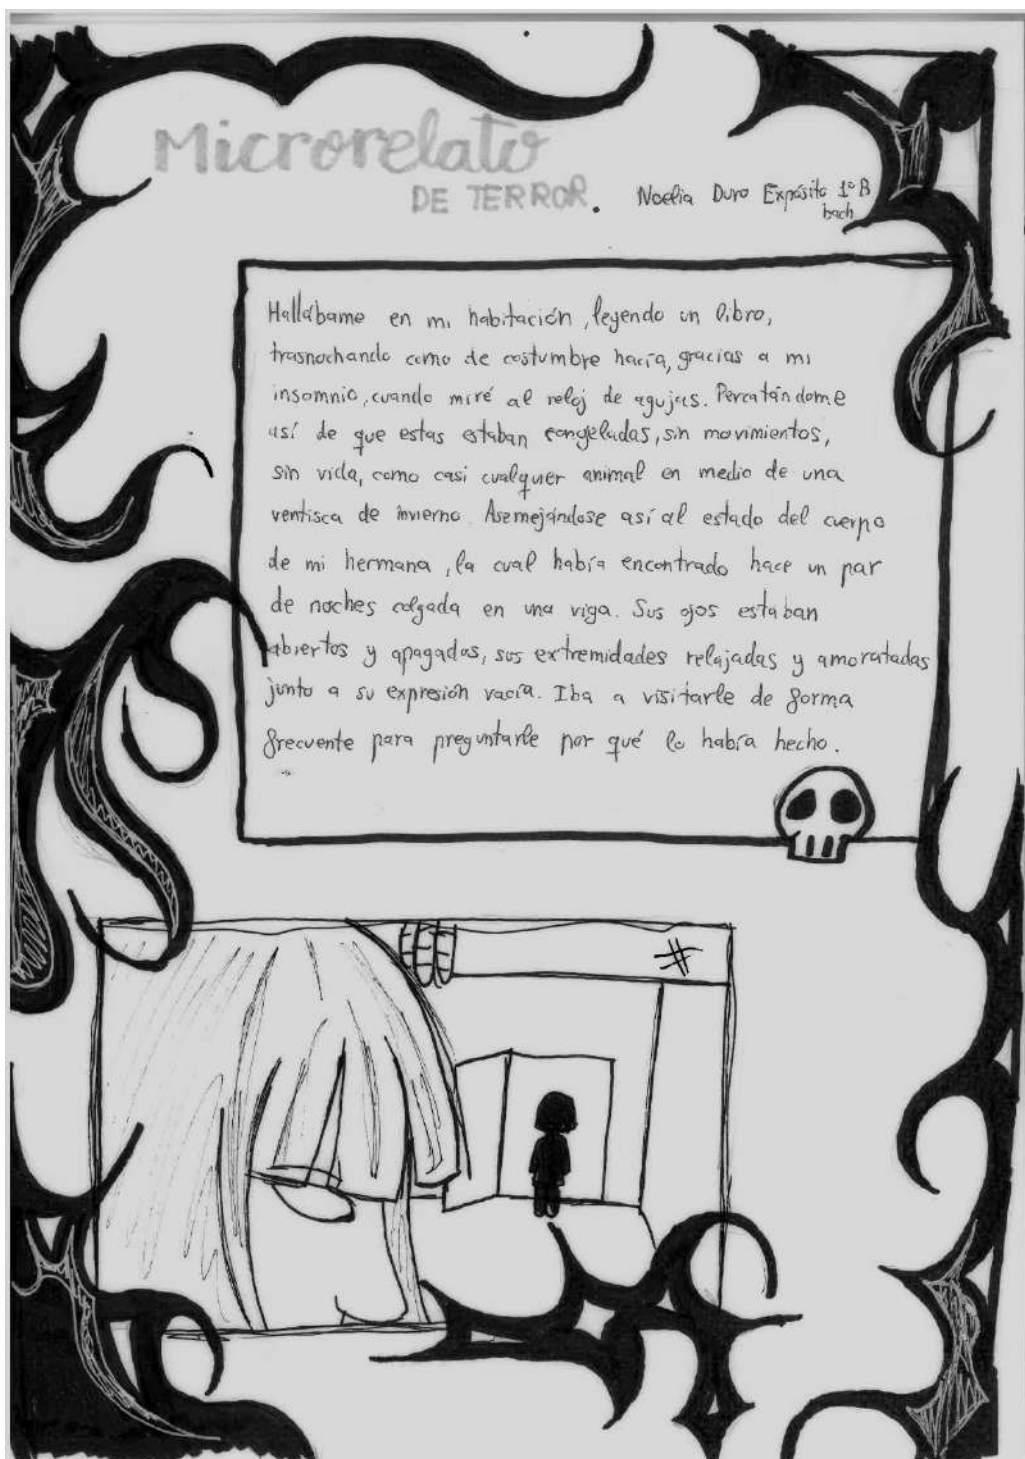 Microrelato
DE TERROR.
Noelia Duro Expósito 1º B
bach
Hallábame en mi habitación, leyendo un libro,
trasnochando como de costumbre hacía, gracias a mi
insomnio, cuando miré al reloj de agujas. Percatándome
así de que estas estaban congeladas, sin movimientos,
sin vida, como casi cualquer animal en medio de una
ventisca de invierno. Asemejándose así al estado del cuerpo
de mi hermana, la cual había encontrado hace un par
de noches colgada en una viga. Sus ojos estaban
abiertos y apagados, sus extremidades relajadas y amoratadas
junto a su expresión vacía. Iba a visitarle de forma
frecuente para preguntarle por qué lo había hecho.